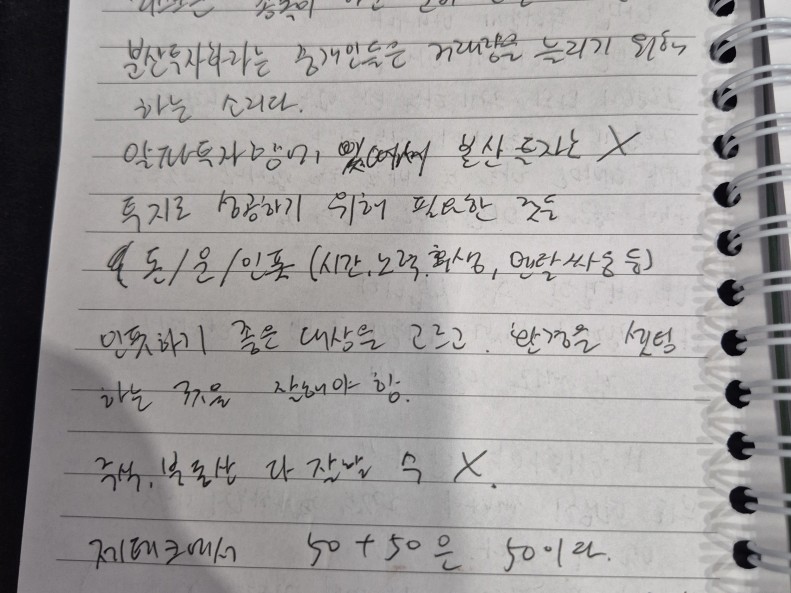 종목이
분산투자하라는 중개인들은 거래량을 늘리기 위해
하는 소리다.
분산투자는 X
투자로 성공하기 위해 필요한 것들
돈/운/인풋 (시간, 노력, 희생, 멘탈싸움 등)
인풋하기 좋은 대상을 고르고, 환경을 셋팅
하는 것을 잘해야 함.
주식, 부동산 다 잘날 수 X.
제테크에서 50+50은 50이다.